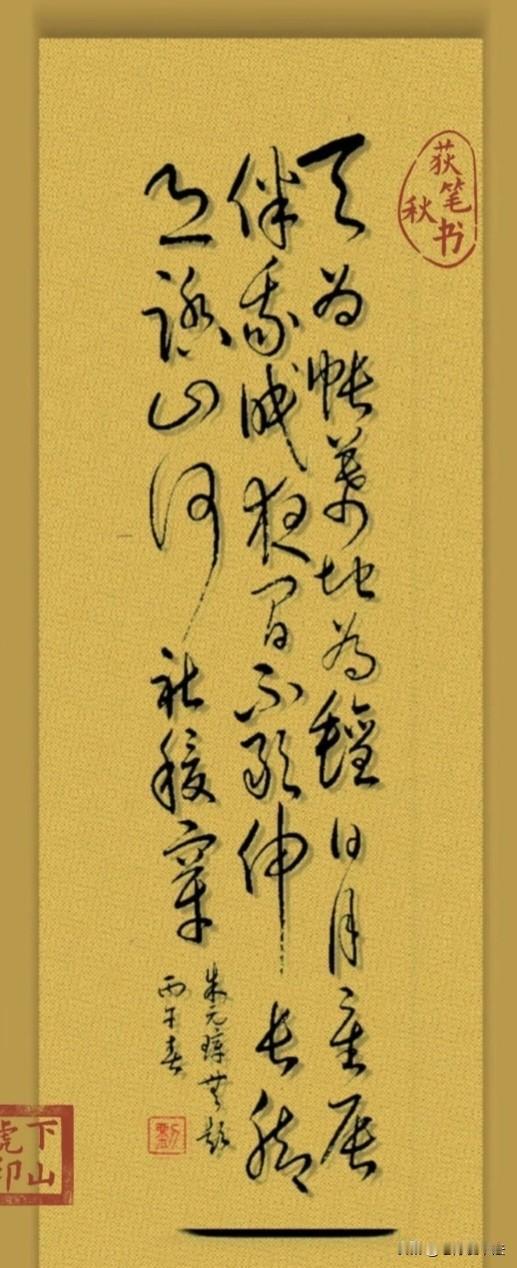 荻笔书
秋
天为帐幕地為氈日月星辰
伴我眠夜间不敢伸长脚
恐踏山河社稷穿
朱元璋無題
丙午春
下山
虎印